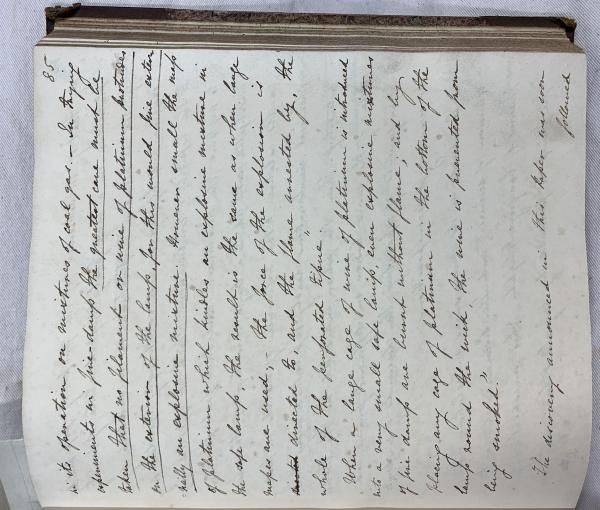 85
in its operation on mixtures of coal gas. – In trying
experiments in fire-damp the greatest care must be
taken that no filament or wire of platinum protudes
on the exterior of the lamp, for this would fire exter
nally an explosive mixture. However small the mass
of platinum which kindles an explosive mixture in
the safe lamp, the result is the same as when large
masses are used; – the force of the explosion is
directed to, and the flame arrested by, the
whole of the perforated tissue."
When a large cage of wire of platinum is introduced
into a very small safe lamp, even explosive mixtures
of fire damp are burnt without flame; and by
placing any cage of platinum in the bottom of the
lamp round the wick, the wire is prevented from
being smoked."
The discovery announced in this paper was soon
followed